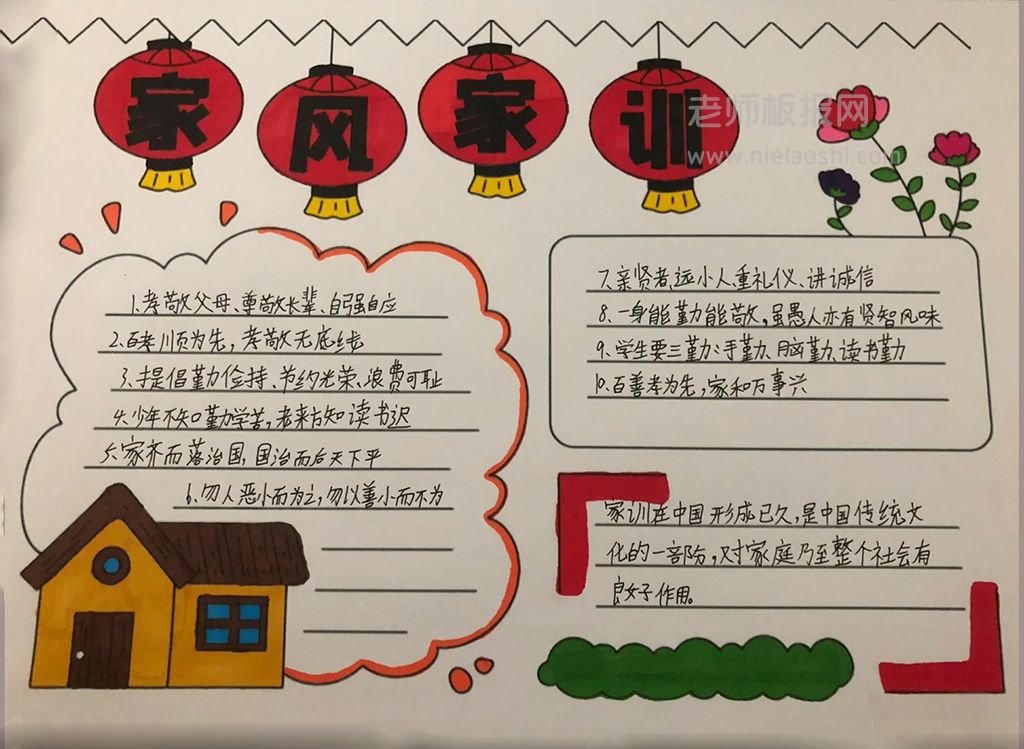 家风家训
老师板报网
www.nielaoshi.com
1、孝敬父母、尊敬长辈、自强自应
2、百孝顺为先，孝敬无底线
3、提倡勤俭持、节约光荣、浪费可耻
4、少年不知勤学苦，老来方知读书迟
5、家齐而落治国，国治而后天下平
6、勿人恶小而为之，勿以善小而不为
7、亲贤者，远小人重礼仪、讲诚信
8、一身能勤能敬，虽愚人亦有贤智风味
9、学生要三勤：手勤、脑勤、读书勤
10、百善孝为先，家和万事兴
家训在中国形成已久，是中国传统文
化的一部份，对家庭乃至整个社会有
良好作用。